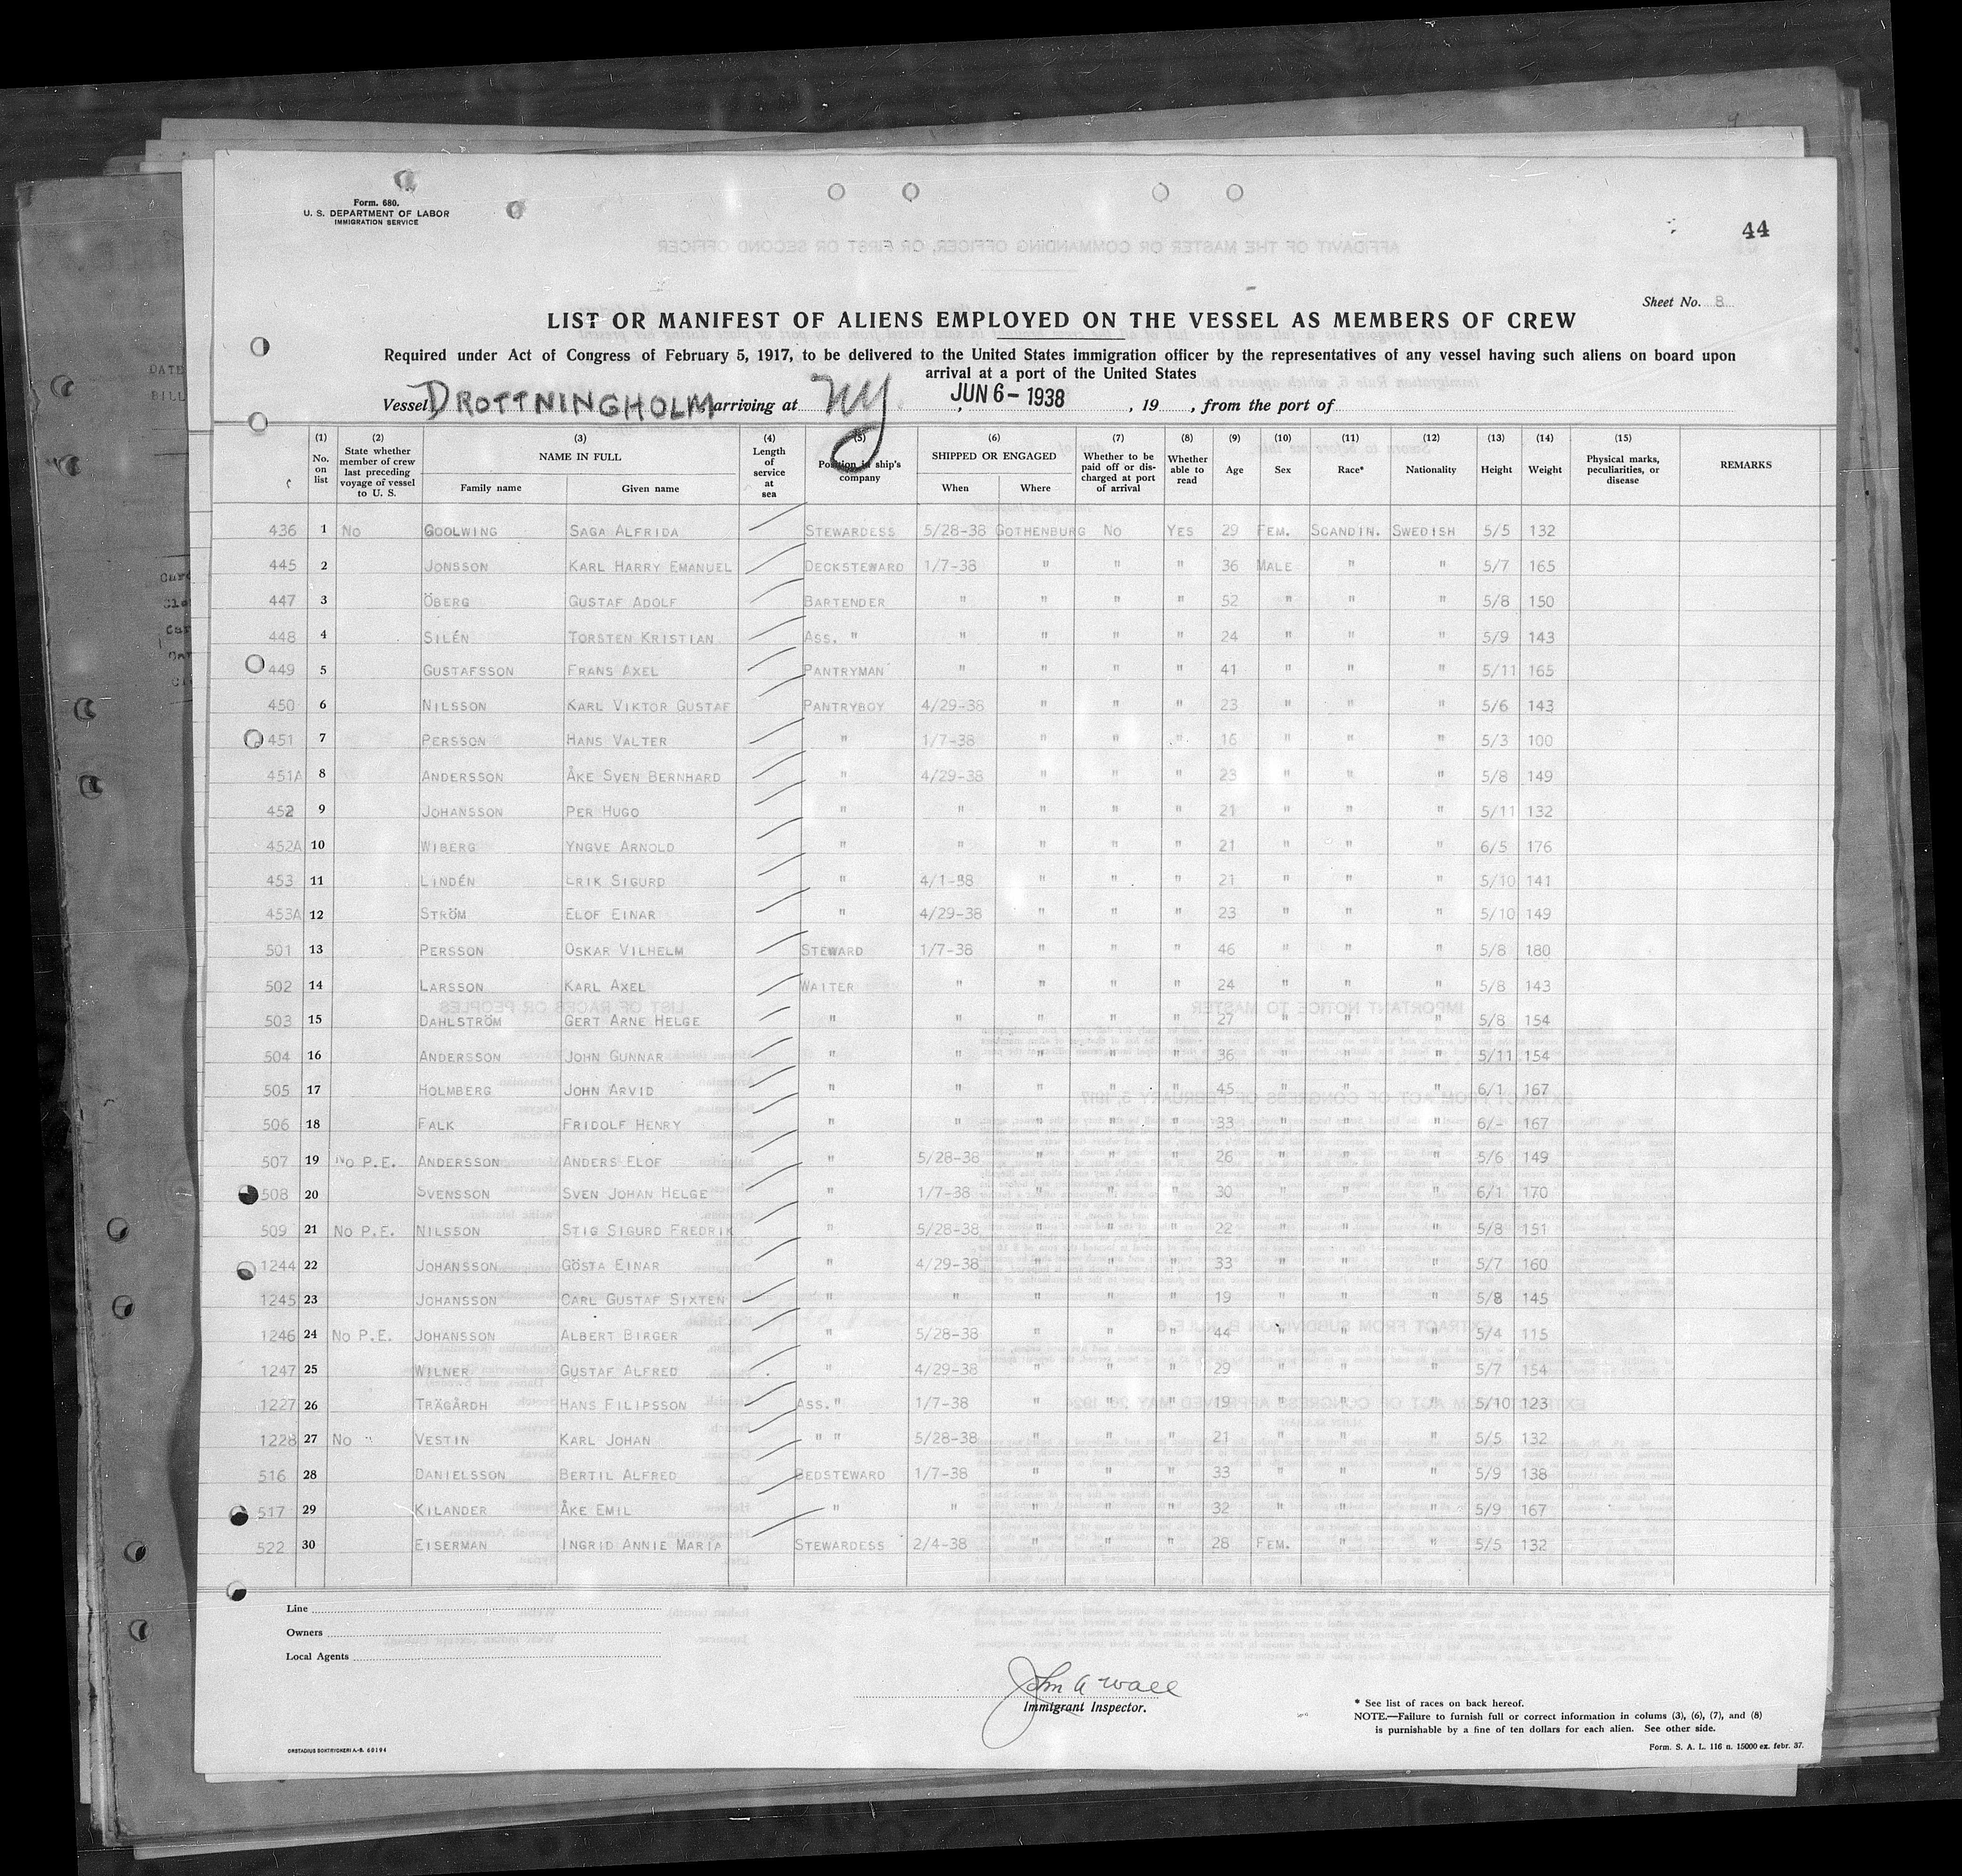 Form. 680.
U. S. DEPARTMENT OF LABOR
IMMIGRATION SERVICE
44
Sheet No. 8
LIST OR MANIFEST OF ALIENS EMPLOYED ON THE VESSEL AS MEMBERS OF CREW
Required under Act of Congress of February 5, 1917, to be delivered to the United States immigration officer by the representatives of any vessel having such aliens on board upon
arrival at a port of the United States
Vessel DROTTNINGHOLM arriving at NY , JUN 6 - 1938 , 19 , from the port of
(1) No. on list (2) State whether member of crew last preceding voyage of vessel to U. S. (3) NAME IN FULL Family name Given name (4) Length of service at sea (5) Position in ship's company (6) SHIPPED OR ENGAGED When Where (7) Whether to be paid off or discharged at port of arrival (8) Whether able to read (9) Age (10) Sex (11) Race* (12) Nationality (13) Height (14) Weight (15) Physical marks, peculiarities, or disease REMARKS
436 1 No GOOLWING SAGA ALFRIDA STEWARDESS 5/28-38 GOTHENBURG No YES 29 FEM. SCANDIN. SWEDISH 5/5 132
445 2 JONSSON KARL HARRY EMANUEL DECKSTEWARD 1/7-38 " " " 36 MALE " " 5/7 165
447 3 ÖBERG GUSTAF ADOLF BARTENDER " " " " 52 " " " 5/8 150
448 4 SILÉN TORSTEN KRISTIAN ASS. " " " " " 24 " " " 5/9 143
449 5 GUSTAFSSON FRANS AXEL PANTRYMAN " " " " 41 " " " 5/11 165
450 6 NILSSON KARL VIKTOR GUSTAF PANTRYBOY 4/29-38 " " " 23 " " " 5/6 143
451 7 PERSSON HANS VALTER " 1/7-38 " " " 16 " " " 5/3 100
451A 8 ANDERSSON ÅKE SVEN BERNHARD " 4/29-38 " " " 23 " " " 5/8 149
452 9 JOHANSSON PER HUGO " " " " " 21 " " " 5/11 132
452A 10 WIBERG YNGVE ARNOLD " " " " " 21 " " " 6/5 176
453 11 LINDÉN ERIK SIGURD " 4/1-38 " " " 21 " " " 5/10 141
453A 12 STRÖM ELOF EINAR " 4/29-38 " " " 23 " " " 5/10 149
501 13 PERSSON OSKAR VILHELM STEWARD 1/7-38 " " " 46 " " " 5/8 180
502 14 LARSSON KARL AXEL WAITER " " " " 24 " " " 5/8 143
503 15 DAHLSTRÖM GERT ARNE HELGE " " " " " 27 " " " 5/8 154
504 16 ANDERSSON JOHN GUNNAR " " " " " 36 " " " 5/11 154
505 17 HOLMBERG JOHN ARVID " " " " " 45 " " " 6/1 167
506 18 FALK FRIDOLF HENRY " " " " " 33 " " " 6/- 167
507 19 No P.E. ANDERSSON ANDERS ELOF " 5/28-38 " " " 26 " " " 5/6 149
508 20 SVENSSON SVEN JOHAN HELGE " 1/7-38 " " " 30 " " " 6/1 170
509 21 No P.E. NILSSON STIG SIGURD FREDRIK " 5/28-38 " " " 22 " " " 5/8 151
1244 22 JOHANSSON GÖSTA EINAR " 4/29-38 " " " 33 " " " 5/7 160
1245 23 JOHANSSON CARL GUSTAF SIXTEN " " " " " 19 " " " 5/8 145
1246 24 No P.E. JOHANSSON ALBERT BIRGER " 5/28-38 " " " 44 " " " 5/4 115
1247 25 WILNER GUSTAF ALFRED " 4/29-38 " " " 29 " " " 5/7 154
1227 26 TRÄGÅRDH HANS FILIPSSON ASS. " 1/7-38 " " " 19 " " " 5/10 123
1228 27 No " VESTIN KARL JOHAN " " 5/28-38 " " " 21 " " " 5/5 132
516 28 DANIELSSON BERTIL ALFRED BEDSTEWARD 1/7-38 " " " 33 " " " 5/9 138
517 29 KILANDER ÅKE EMIL " " " " " 32 " " " 5/9 167
522 30 EISERMAN INGRID ANNIE MARIA STEWARDESS 2/4-38 " " " 28 FEM. " " 5/5 132
Line
Owners
Local Agents
John A Wall
Immigrant Inspector.
* See list of races on back hereof.
NOTE.—Failure to furnish full or correct information in colums (3), (6), (7), and (8)
is purnishable by a fine of ten dollars for each alien. See other side.
ORSTADIUS BOKTRYCKERI A.-B. 60194
Form. S. A. L. 116 n. 15000 ex. febr. 37.